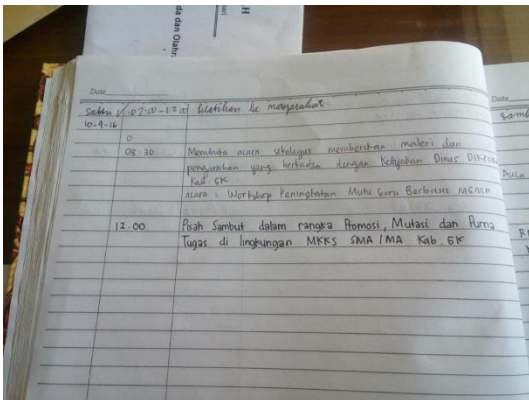 H
da dan Olahr
Date
Date
Sabtu 07.00-12.00 Pelatihan ke masyarakat
10-9-16
0
08.30 Membuka acara sekaligus memberikan materi dan
pengarahan yang berkaitan dengan Kebijakan Dinas DIKPORA
Kab. GK
acara : Workshop Peningkatan Mutu Guru Berbasis MGMP
12.00 Pisah Sambut dalam rangka Promosi, Mutasi dan Purna
Tugas di lingkungan MKKS SMA/MA Kab. GK
Aula